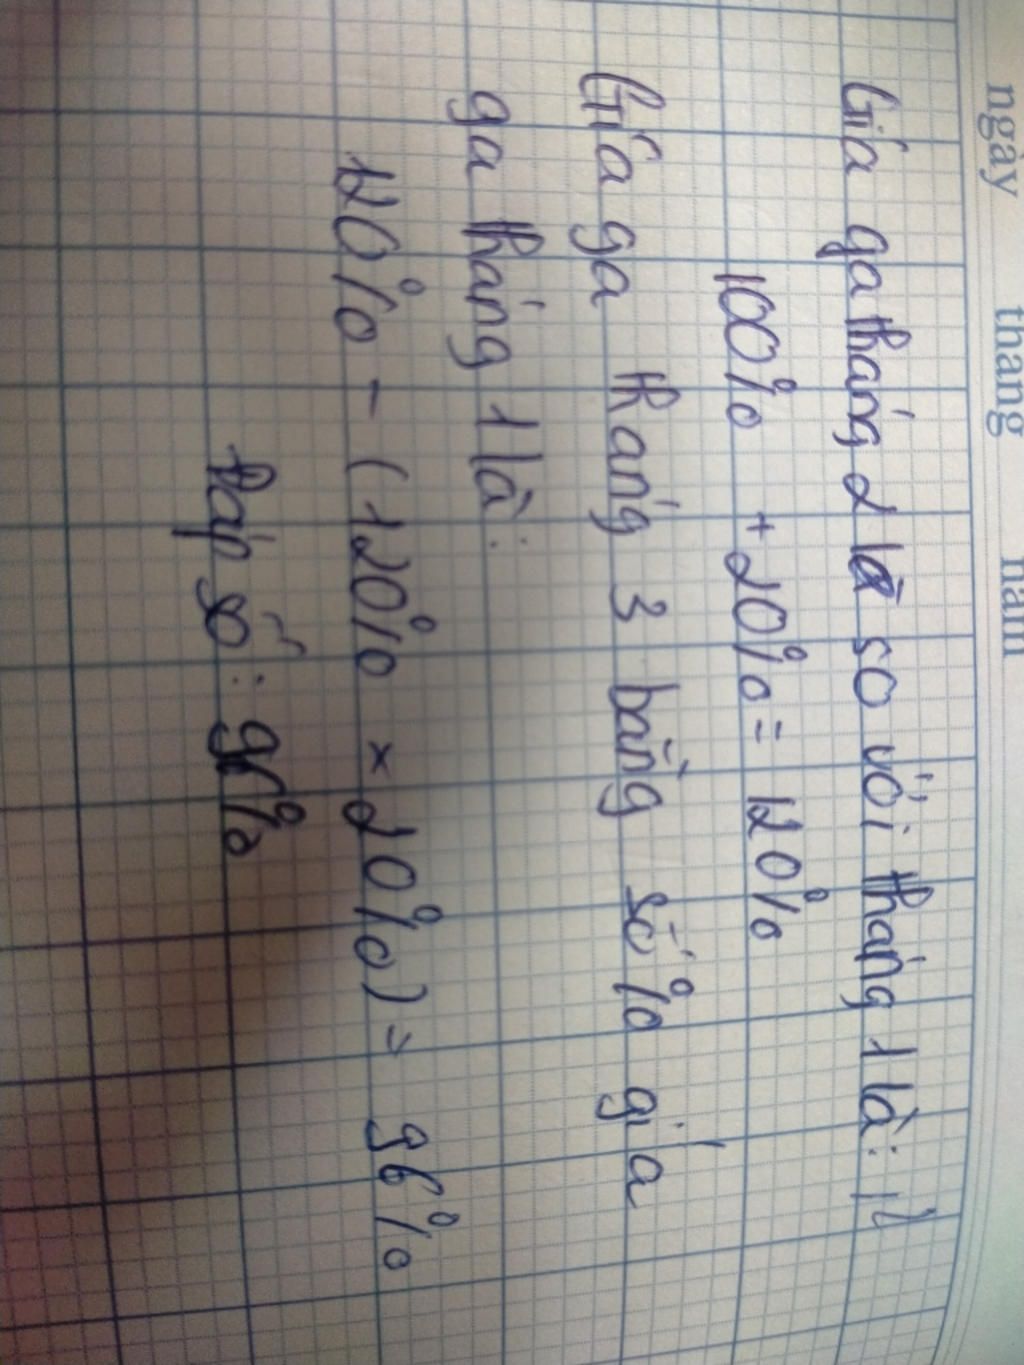 ngày tháng năm
Giá ga tháng 2 là so với tháng 1 là:
100% + 20% = 120%
Giá ga tháng 3 bằng số % giá
ga tháng 1 là:
120% - (120% × 20%) = 96%
Đáp số: 96%